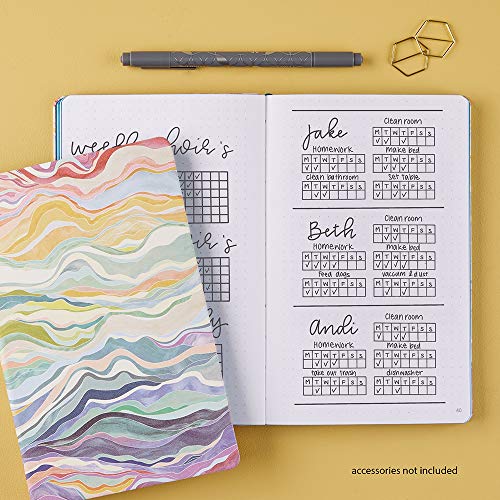 Clean room
Jake
M T W T F S S
Homework
Make bed
M T W T F S S
M T W T F S S
Clean bathroom
Set table
M T W T F S S
M T W T F S S
Clean room
Beth
M T W T F S S
Homework
Make bed
M T W T F S S
M T W T F S S
feed dogs
vaccum & dust
M T W T F S S
M T W T F S S
Clean room
Andi
M T W T F S S
Homework
Make bed
M T W T F S S
M T W T F S S
take out trash
dishwasher
M T W T F S S
M T W T F S S
accessories not included